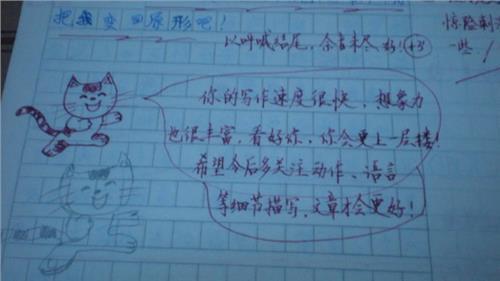 把我变回原形吧！
以叫喊结尾，余音未尽，好！+3
惊险刺
一些！
你的写作速度很快，想象力
也很丰富，看好你，你会更上一层楼！
希望今后多关注动作、语言
等细节描写，文章才会更好！